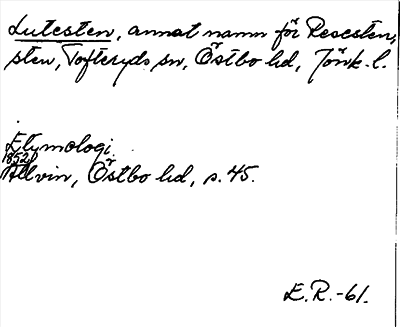 Lutesten, annat namn för Resesten,
sten, Tofteryds sn, Östbo hd, Jönk. l.
Etymologi
1852
Allvin, Östbo hd, s. 45.
E.R.-61.